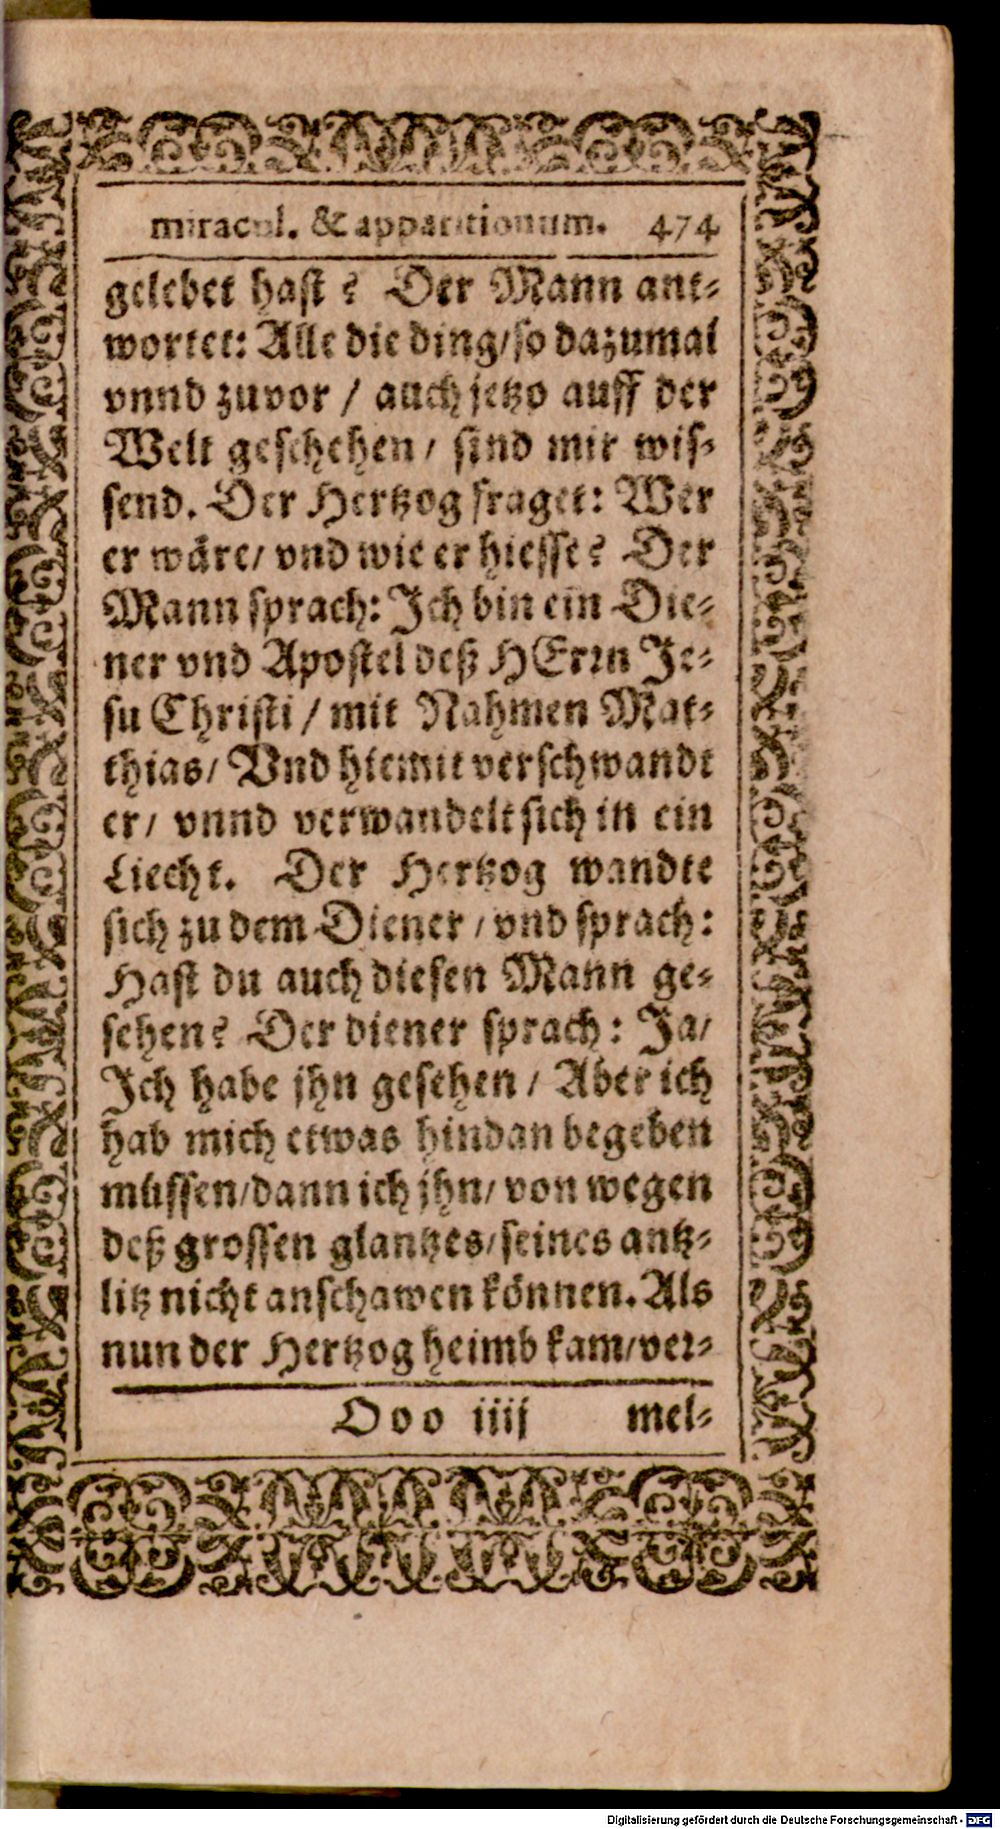 miracul. & apparitionum. 474
gelebet hast? Der Mann ant-
wortet: Alle die ding/ so dazumal
vnnd zuvor / auch jetzo auff der
Welt geschehen / sind mir wis-
send. Der Hertzog fraget: Wer
er wäre/ vnd wie er hiesse? Der
Mann sprach: Ich bin ein Die-
ner vnd Apostel deß HErrn Je-
su Christi / mit Nahmen Mat-
thias/ Vnd hiemit verschwandt
er/ vnnd verwandelt sich in ein
Liecht. Der Hertzog wandte
sich zu dem Diener / vnd sprach:
Hast du auch diesen Mann ge-
sehen? Der diener sprach: Ja/
Ich habe jhn gesehen / Aber ich
hab mich etwas hindan begeben
müssen/ dann ich jhn/ von wegen
deß grossen glantzes/ seines antz-
litz nicht anschawen können. Als
nun der Hertzog heimb kam/ ver-
Ooo iiij mel-
Digitalisierung gefördert durch die Deutsche Forschungsgemeinschaft - DFG